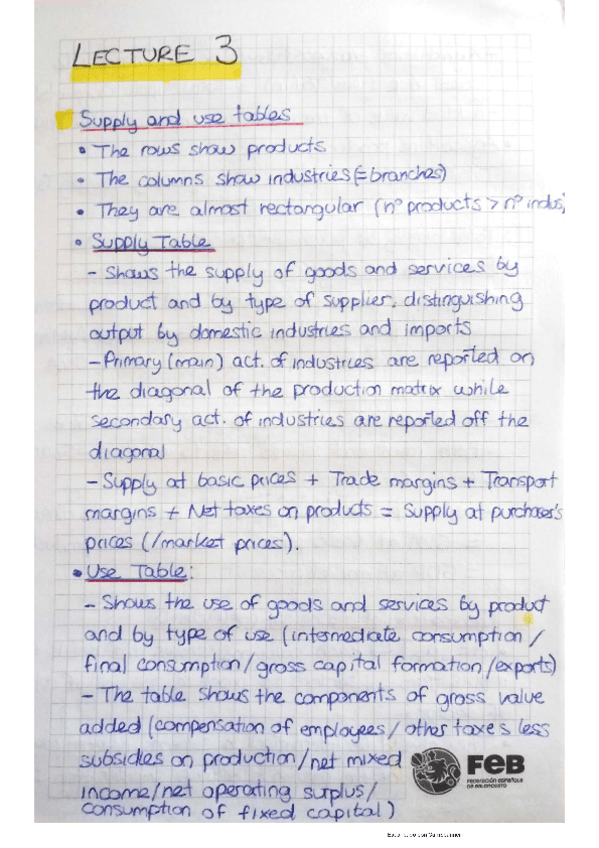 LECTURE 3
Supply and use tables
• The rows show products
• The columns show industries (=branches)
• They are almost rectangular (nº products > nº indus
• Supply Table
- Shows the supply of goods and services by
product and by type of supplier, distinguishing
output by domestic industries and imports
- Primary (main) act. of industries are reported on
the diagonal of the production matrix while
secondary act. of industries are reported off the
diagonal
- Supply at basic prices + Trade margins + Transport
margins + Net taxes on products = Supply at purchaser's
prices (/market prices).
• Use Table:
- Shows the use of goods and services by product
and by type of use (intermediate consumption /
final consumption/gross capital formation/exports)
- The table shows the components of gross value
added (compensation of employees/ other taxes less
subsidies on production/net mixed
income/net operating surplus/
consumption of fixed capital)
FEB
FEDERACIÓN ESPAÑOLA
DE BALONCESTO